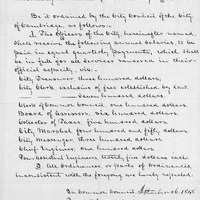 Be it ordained by the City Council of the City
of Cambridge as follows:
1. The officers of the City, hereinafter named,
shall receive the following annual salaries, to be
paid in equal quarterly payments, which shall
be in full for all services rendered in their
official capacity, viz:
City Treasurer, three hundred dollars.
City Clerk, exclusive of fees established by law,
hundred dollars.
Clerk of Common Council, one hundred dollars.
Board of Assessors, six hundred dollars.
Collector of Taxes, five hundred dollars.
City Marshal, four hundred and fifty dollars.
City Messenger, three hundred dollars.
Chief Engineer, one hundred dollars.
dollars each.
2. All ordinances, or parts of ordinances
inconsistent with the foregoing are hereby repealed.
In Common Council